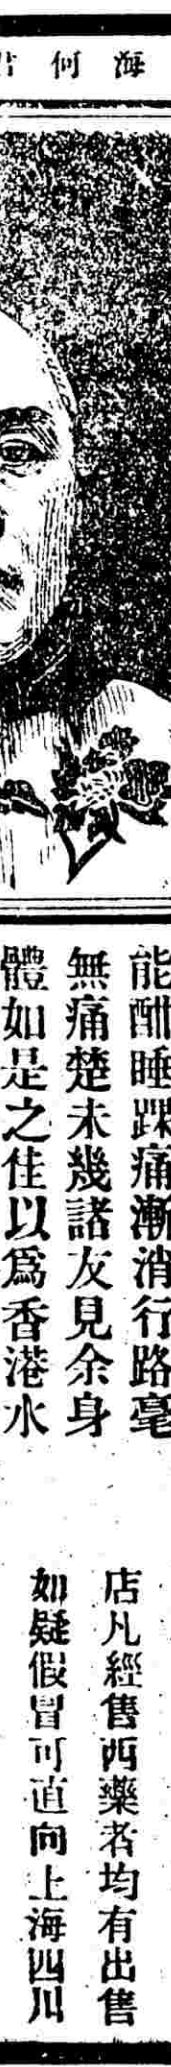 海何
能酣睡踝痛漸消行路毫
無痛楚未幾諸友見余身
體如是之佳以爲香港水
店凡經售西藥者均有出售
如疑假冒可直向上海四川